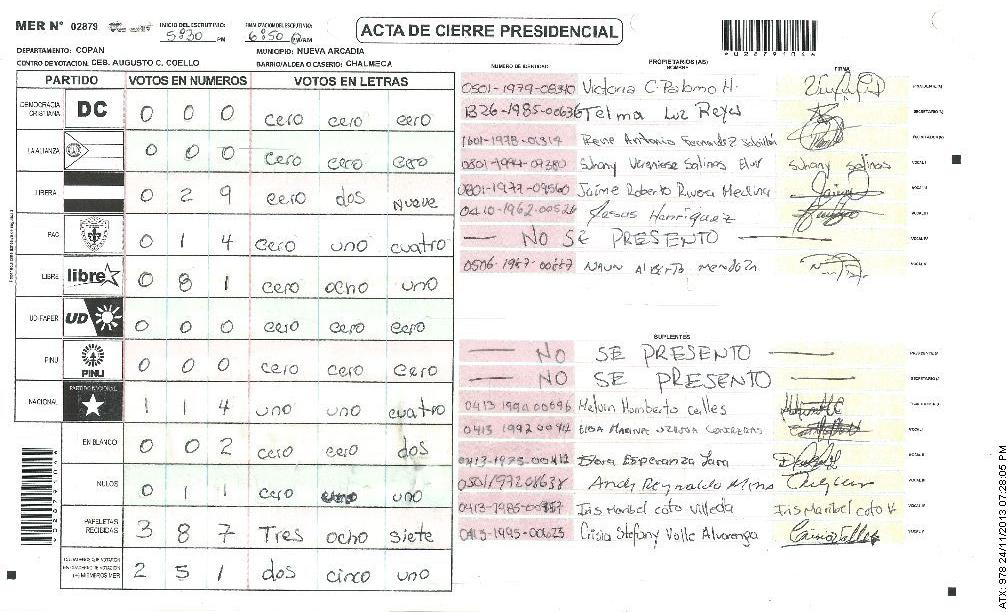 MER N° 02879 INICIO DEL ESCRUTINIO: 5:30 PM FINALIZACION DEL ESCRUTINIO: 6:50 ACTA DE CIERRE PRESIDENCIAL
DEPARTAMENTO: COPAN MUNICIPIO: NUEVA ARCADIA
CENTRO DE VOTACION: CEB. AUGUSTO C. COELLO BARRIO/ALDEA O CASERIO: CHALMECA
PARTIDO VOTOS EN NUMEROS VOTOS EN LETRAS
DEMOCRACIA CRISTIANA DC 0 0 0 cero cero cero
LA ALIANZA 0 0 0 cero cero cero
LIBERA 0 2 9 cero dos nueve
PAC 0 1 4 cero uno cuatro
LIBRE libre 0 8 1 cero ocho uno
UD-FAPER UD 0 0 0 cero cero cero
PINU PINU 0 0 0 cero cero cero
NACIONAL PARTIDO NACIONAL 1 1 4 uno uno cuatro
EN BLANCO 0 0 2 cero cero dos
NULOS 0 1 1 cero uno uno
PAPELETAS RECIBIDAS 3 8 7 Tres ocho siete
(+) MIEMBROS MER 2 5 1 dos cinco uno
PROPIETARIOS (AS)
NUMERO DE IDENTIDAD NOMBRE FIRMA
0501-1979-08340 Victoria C. Palomo H. PRESIDENTE (A)
1326-1985-00636 Telma Luz Reyes SECRETARIO (A)
1601-1978-01314 Rene Antonio Fernandez ESCRUTADOR (A)
0801-1994-07380 Suhany Veraniese Salinas suhany salinas VOCAL I
0801-1977-09560 Jaime Roberto Rivera Medina VOCAL II
0410-1962-00526 Jesus Henriquez VOCAL III
NO SE PRESENTO VOCAL IV
0506-1987-00687 NAUN Alberto Mendoza VOCAL V
SUPLENTES
NO SE PRESENTO PRESIDENTE (A)
NO SE PRESENTO SECRETARIO (A)
0413 1990 00696 Melvin Homberto Celles
0413 1992 00914 VOCAL I
0413-1975-00412 Dora Esperanza Lara VOCAL II
0501197208638 Andy Reynaldo VOCAL III
0413-1985-00957 Iris Maribel coto Villeda Iris Maribel coto V VOCAL IV
0413-1995-00623 Crisia Stefany Valle Alvarenga VOCAL V
ATX: 978 24/11/2013 07:28:05 PM